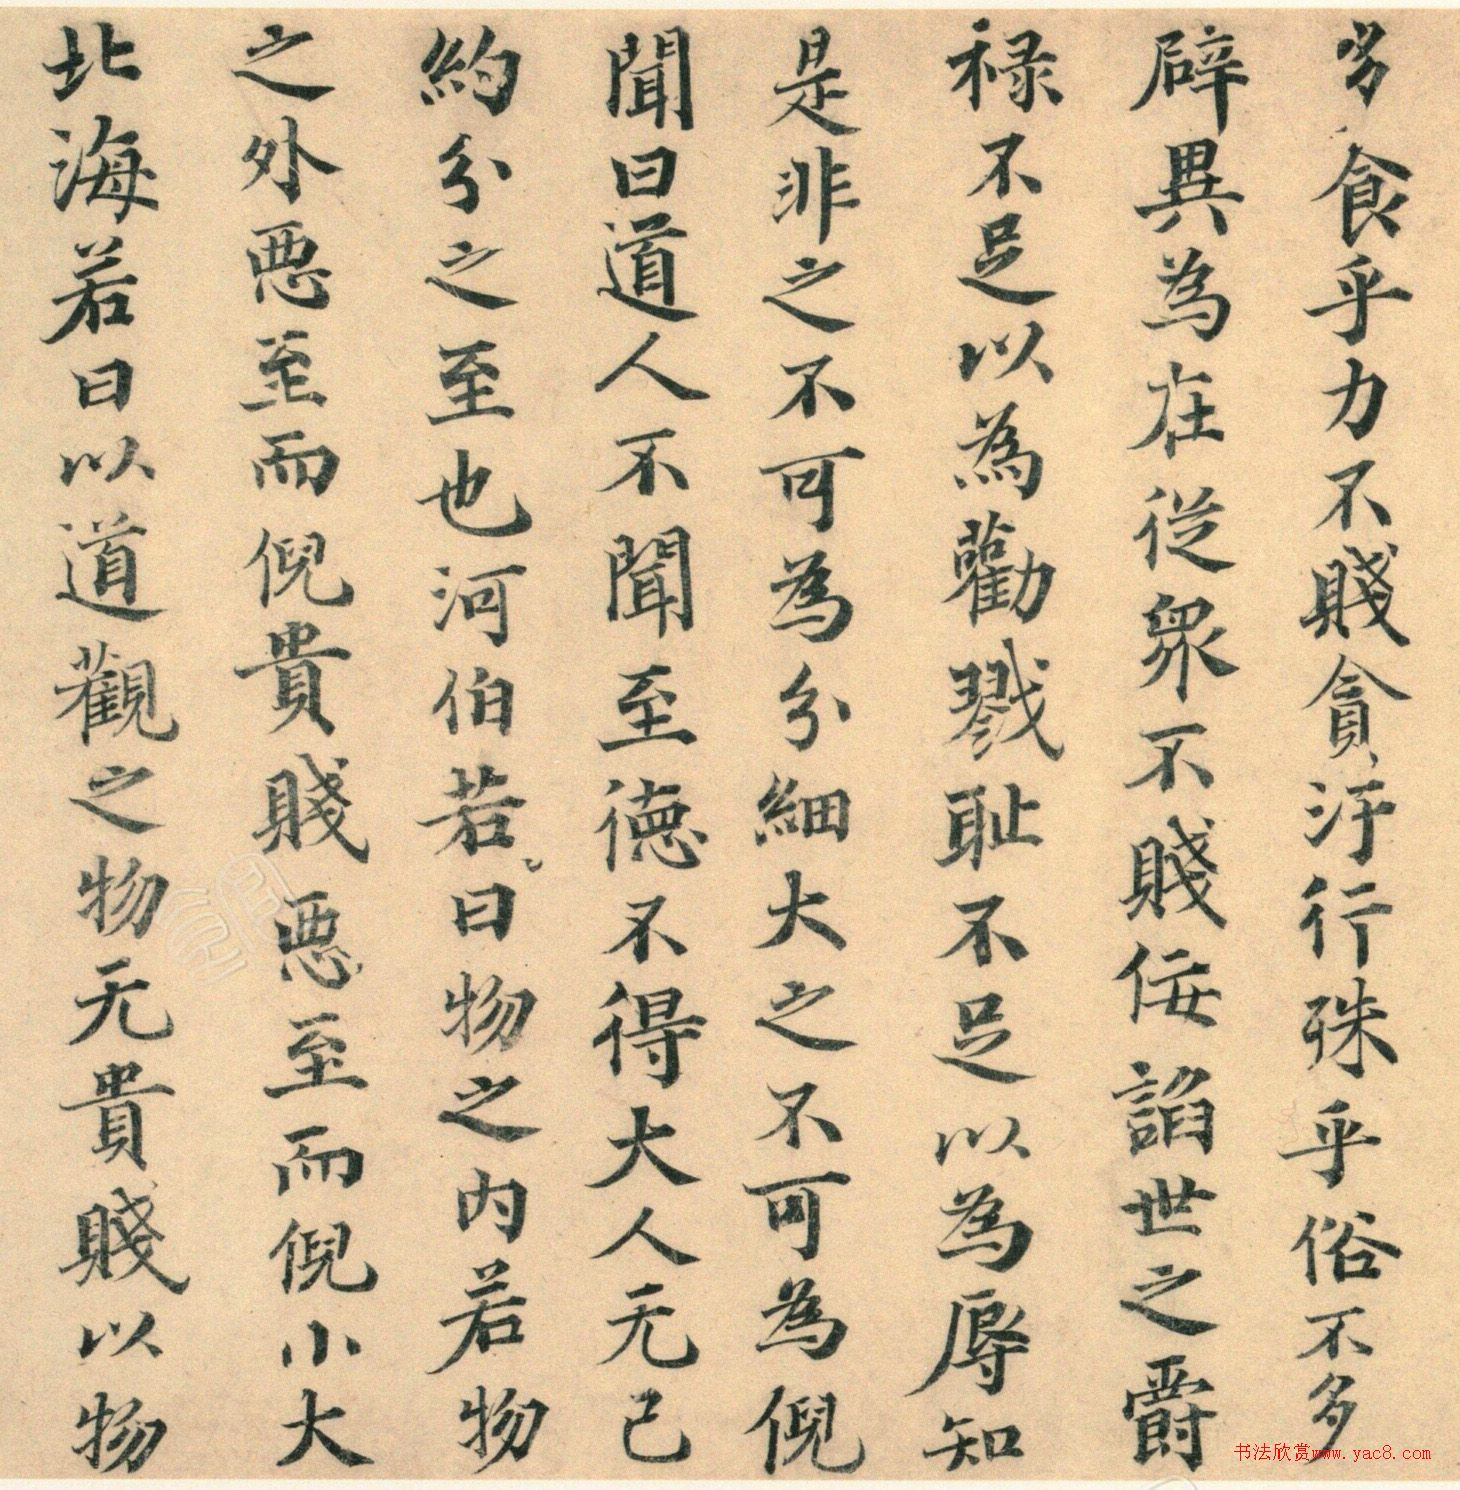 多食乎力不賤貪汙行殊乎俗不多
辟異為在從眾不賤佞諂世之爵
祿不足以為勸戮耻不足以為辱知
是非之不可為分細大之不可為倪
聞曰道人不聞至德不得大人无己
約分之至也河伯若曰物之內若物
之外惡至而倪貴賤惡至而倪小大
北海若曰以道觀之物无貴賤以物
书法欣赏www.yac8.com